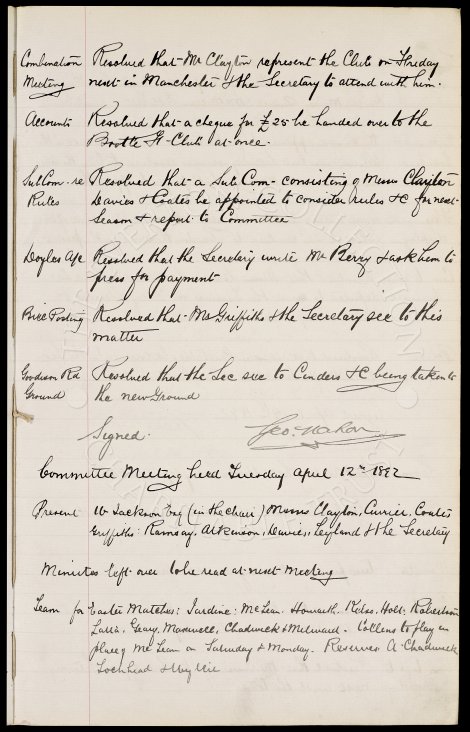 Combination Resolved that Mr Clayton represent the Club on Friday
Meeting next in Manchester & the Secretary to attend with him.
Accounts Resolved that a cheque for £25 be handed over to the
Bootle F. Club at once.
Sub Com. re Resolved that a Sub Com. consisting of Messrs Clayton
Rules Davies & Coates be appointed to consider rules &c for next
Season & report to Committee
Doyles A/c Resolved that the Secretary write Mr Berry & ask him to
press for payment
Bill Posting Resolved that Mr Griffiths & the Secretary see to this
matter
Goodison Rd Resolved that the Sec see to Cinders &c being taken to
Ground the new Ground
Signed. Geo. Mahon
Committee Meeting held Tuesday April 12th 1892
Present W Jackson Esq (in the chair) Messrs Clayton, Currier, Coates
Griffiths Ramsay, Atkinson, Davies, Leyland & the Secretary
Minutes left over to be read at next Meeting
Team for Easter Matches: Jardine: McLean, Howarth, Kelso, Holt, Robertson
Latta, Geary, Maxwell, Chadwick & Milward. Collins to play in
place of McLean on Saturday & Monday. Reserves A. Chadwick
Lochhead & Wyllie